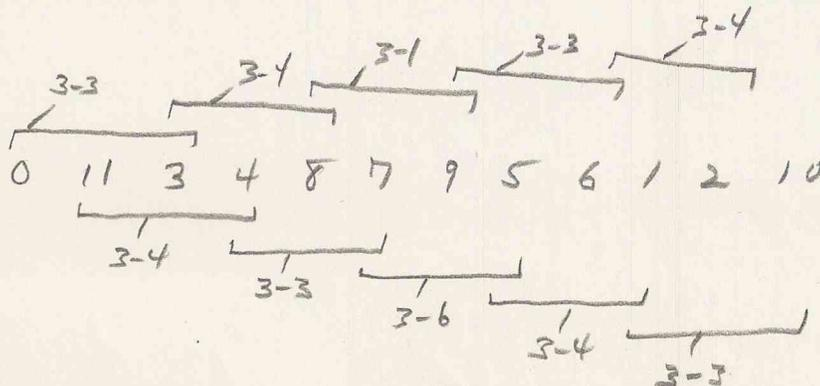 3-3 3-4 3-1 3-3 3-4
0 11 3 4 8 7 9 5 6 1 2 10
3-4 3-3 3-6 3-4 3-3